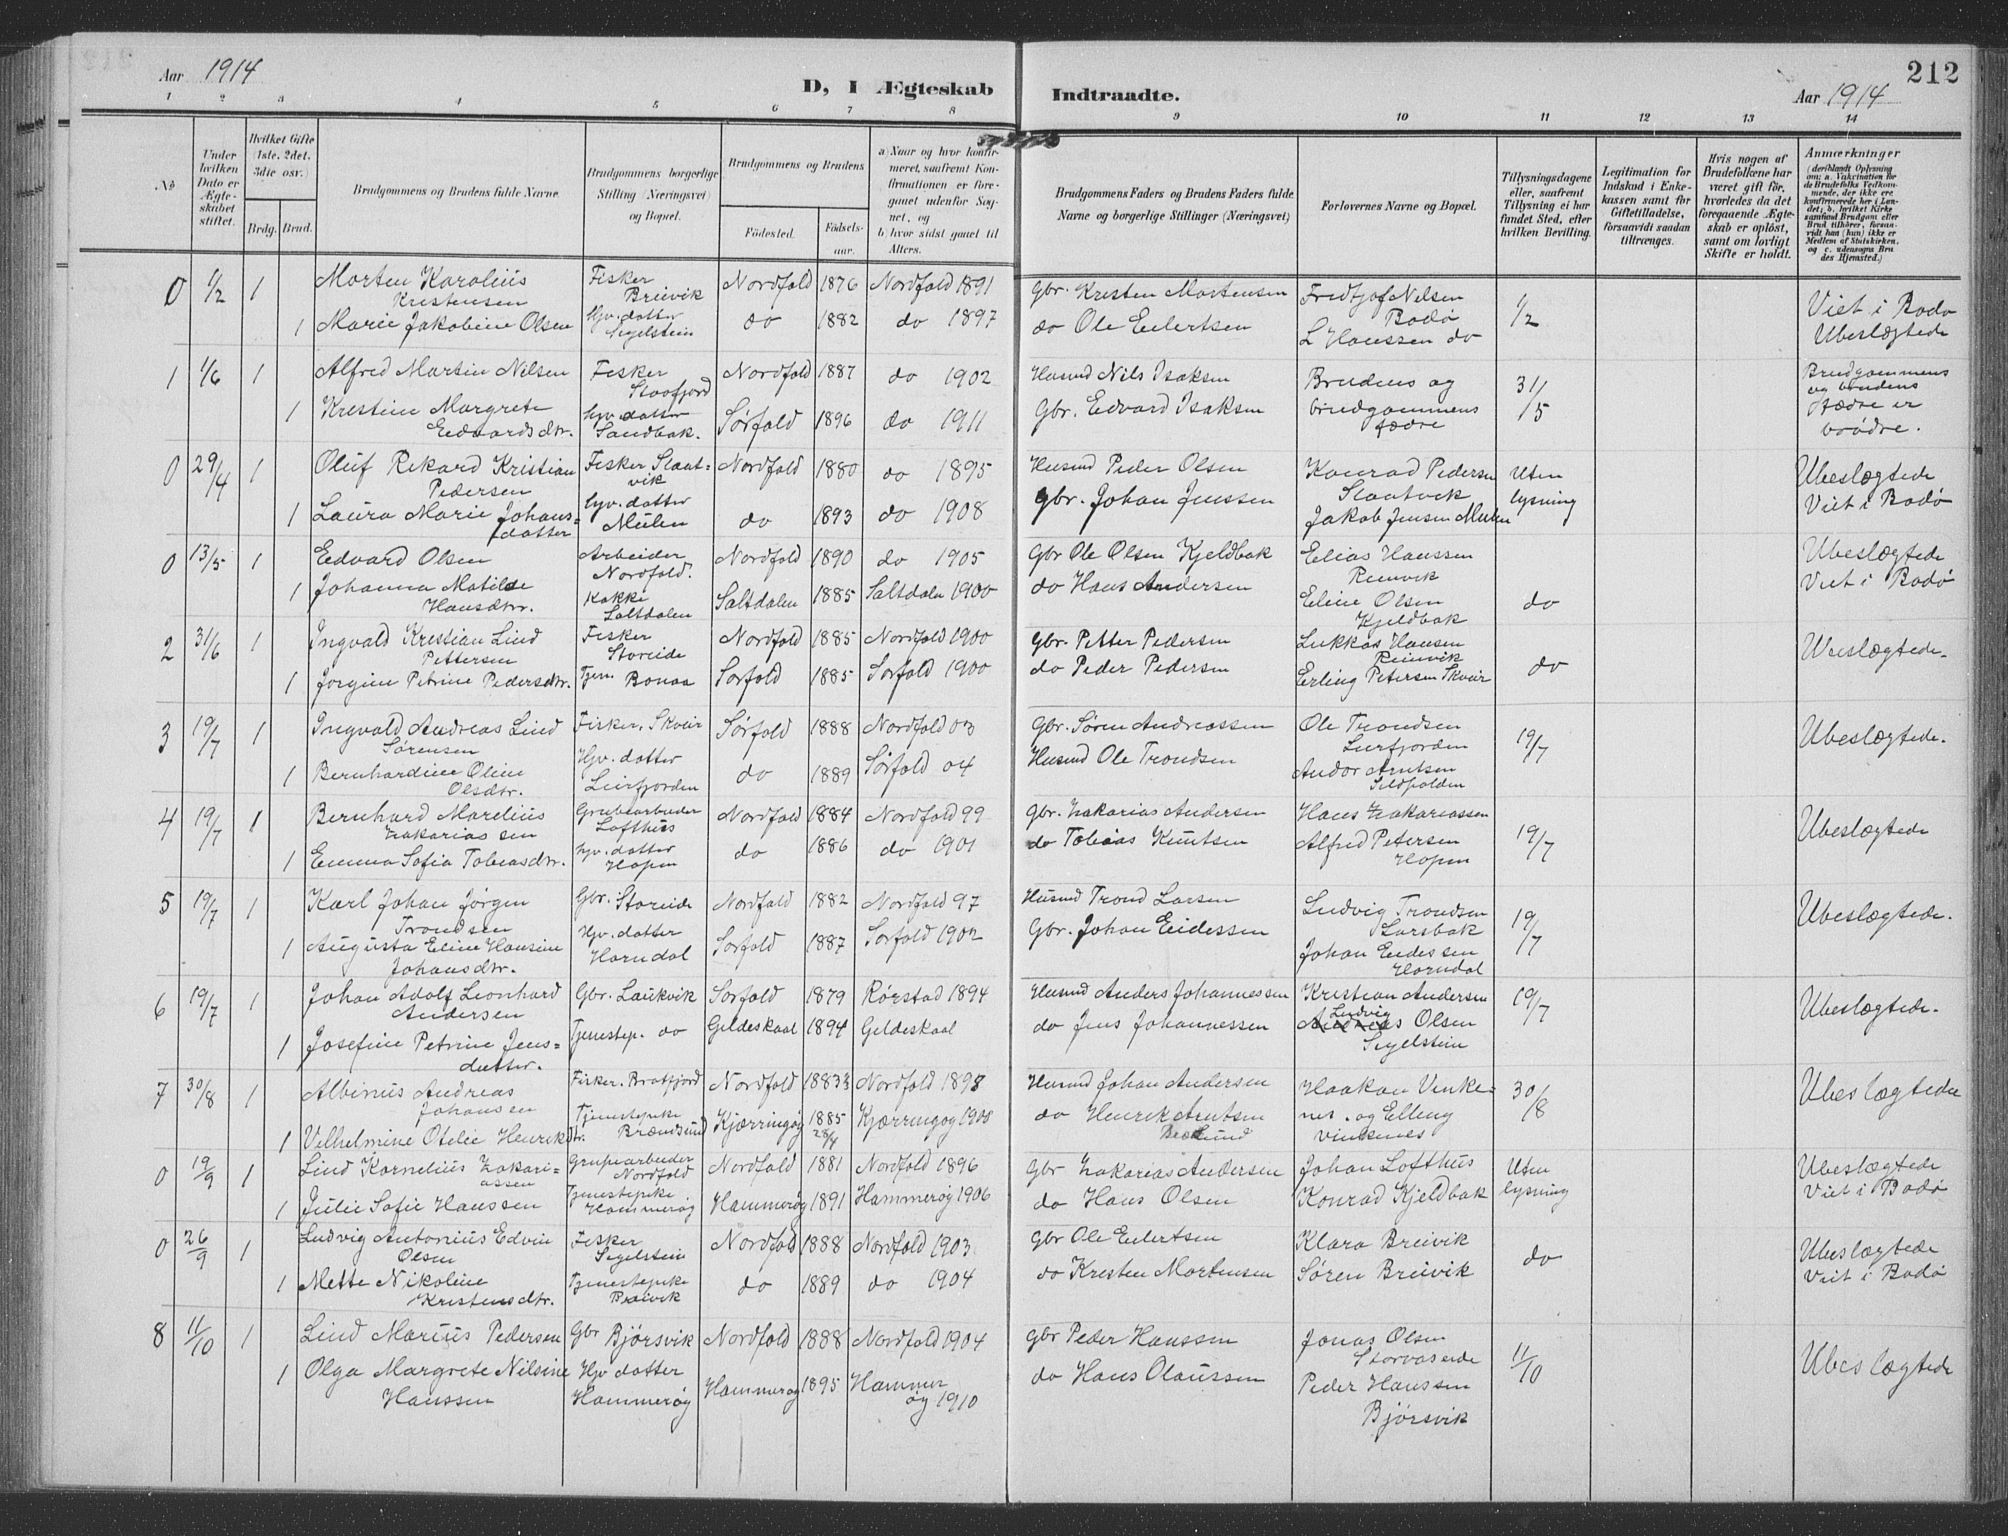 212
Aar 1914
D, I Ægteskab
Indtraadte.
Aar 1914
1 2 3 4 5 6 7 8 9 10 11 12 13 14
No
Under hvilken Dato er Ægteskabet stiftet.
Hvilket Gifte (1ste, 2det, 3die osv.)
Brdg. Brud.
Brudgommens og Brudens fulde Navne.
Brudgommens borgerlige Stilling (Næringsvei) og Bopæl.
Brudgommens og Brudens
Fødested. Fødselsaar.
a) Naar og hvor konfirmeret, saafremt Konfirmationen er foregaaet udenfor Sognet, og
b) hvor sidst gaaet til Alters.
Brudgommens Faders og Brudens Faders fulde Navne og borgerlige Stillinger (Næringsvei)
Forlovernes Navne og Bopæl.
Tillysningsdagene eller, saafremt Tillysning ei har fundet Sted, efter hvilken Bevilling.
Legitimation for Indskud i Enkekassen samt for Giftetilladelse, forsaavidt saadan tiltrænges.
Hvis nogen af Brudefolkene har været gift før, hvorledes da det foregaaende Ægteskab er opløst, samt om lovligt Skifte er holdt.
Anmærkninger
(deriblandt Oplysning om: a. Vakcination for de Brudefolks Vedkommende, der ikke ere konfirmerede her i Landet; b. hvilket Kirkesamfund Brudgom eller Brud tilhører, forsaavidt han (hun) ikke er Medlem af Statskirken, og c. udensogns Brudes Hjemsted.)
0 1/2 1 Morten Karolius Kristensen Fisker Breivik Nordfold 1876 Nordfold 1891 Gbr. Kristen Mortensen Fredtjof Nilsen Bodø 1/2 Viet i Bodø
1 Marie Jakobine Olsen Gjv. datter Segelstein do 1882 do 1897 do Ole Eilertsen L Hanssen do Ubeslægtede
1 1/6 1 Alfred Martin Nilsen Fisker Nordfold 1887 do 1902 Husmd Nils Isaksen Brudens og brudgommens fædre 31/5 Brudgommens og brudens fædre er brødre.
1 Kristine Margrete Edvardsdtr. Gjv. datter Sandbak. Sørfold 1896 do 1911 Gbr. Edvard Isaksen
0 29/4 1 Oluf Rikard Kristian Pedersen Fisker Slaatvik Nordfold 1880 do 1895 Husmd Peder Olsen Konrad Pedersen Slaatvik Uten lysning Ubeslægtede
1 Laura Marie Johansdatter Gjv. datter Mulen do 1893 do 1908 Gbr. Johan Jenssen Jakob Jensen Mulen Viet i Bodø
0 13/5 1 Edvard Olsen Arbeider Nordfold. Nordfold 1890 do 1905 Gbr Ole Olsen Kjeldbak Elias Hanssen Reinvik do Ubeslægtede
1 Johanna Matilde Hansdtr. Kokke Saltdalen Saltdalen 1885 Saltdalen 1900 do Hans Andersen Eline Olsen Kjeldbak Viet i Bodø
2 31/6 1 Ingvald Kristian Lind Pettersen Fisker Storeide Nordfold 1885 Nordfold 1900 Gbr. Petter Pedersen Lukkas Hansen Reinvik do Ubeslægtede.
1 Jorgine Petrine Pedersdtr. Tjen. Bonaa Sørfold 1885 Sørfold 1900 do Peder Pedersen Erling Petersen Skveir
3 19/7 1 Ingvald Andreas Lind Sørensen Fisker, Skveir Sørfold 1888 Nordfold 03 Gbr. Søren Andreassen Ole Trondsen Leirfjorden 19/7 Ubeslægtede.
1 Bernhardine Oline Olsdtr. Hjv. datter Leirfjorden do 1889 Sørfold 04 Husmd Ole Trondsen Andor Arntsen
4 19/7 1 Bernhard Marelius Zakariassen Grubearbeider Lofthus Nordfold 1884 Nordfold 99 Gbr. Zakarias Andersen Hans Zakariassen 19/7 Ubeslægtede
1 Emma Sofia Tobiasdtr. Gjv. datter Hopen do 1886 do 1901 do Tobias Knutsen Alfred Petersen Hopen
5 19/7 1 Karl Johan Jørgen Trondsen Gbr. Storeide Nordfold 1882 Nordfold 97 Husmd Trond Larsen Ludvig Trondsen Larsbak 19/7 Ubeslægtede.
1 Augusta Eline Hansine Johansdtr. Hjv. datter Horndal Sørfold 1887 Sørfold 1902 Gbr. Johan Eidessen Johan Eidessen Horndal
6 19/7 1 Johan Adolf Leonhard Andersen Gbr. Laukvik Sørfold 1879 Rørstad 1894 Husmd Anders Johannessen Kristian Andersen 19/7 Ubeslægtede.
1 Josefine Petrine Jensdatter. Tjenestep. do Gildeskaal 1894 Gildeskaal do Jens Johannessen Ludvig Olsen Segelstein
7 30/8 1 Albinus Andreas Johansen Fisker. Brotfjord Nordfold 1883 Nordfold 1898 Husmd Johan Andersen Haakon Vinkenes. og Elling Vinkenes 30/8 Ubeslægtede
1 Vilhelmine Otelie Henrikdtr. Tjenestepike Brændsund Kjærringøy 1885 28/4 Kjærringøy 1900 do Henrik Arntsen
0 19/9 1 Lind Kornelius Zakariassen Grupearbeider Nordfold Nordfold 1881 Nordfold 1896 Gbr Zakarias Andersen Johan Lofthus Uten lysning Ubeslægtede
1 Julie Sofie Hanssen Tjenestepike Hammerøy Hammerøy 1891 Hammerøy 1906 do Hans Olsen Konrad Kjeldbak Viet i Bodø
0 26/9 1 Ludvig Antonius Edvin Olsen Fisker Segelstein Nordfold 1888 Nordfold 1903 Gbr Ole Eilertsen Klara Breivik do Ubeslægtede
1 Mette Nikoline Kristensdtr. Tjenestepike Breivik do 1889 do 1904 do Kristen Mortensen Søren Breivik Viet i Bodø
8 11/10 1 Lind Marius Pedersen Gbr Bjørsvik Nordfold 1888 Nordfold 1904 Gbr Peder Hanssen Jonas Olsen Storvaseide 11/10 Ubeslægtede
1 Olga Margrete Nilsine Hanssen Hjv datter Hammerøy Hammerøy 1895 Hammerøy 1910 do Hans Olaussen Peder Hanssen Bjørsvik